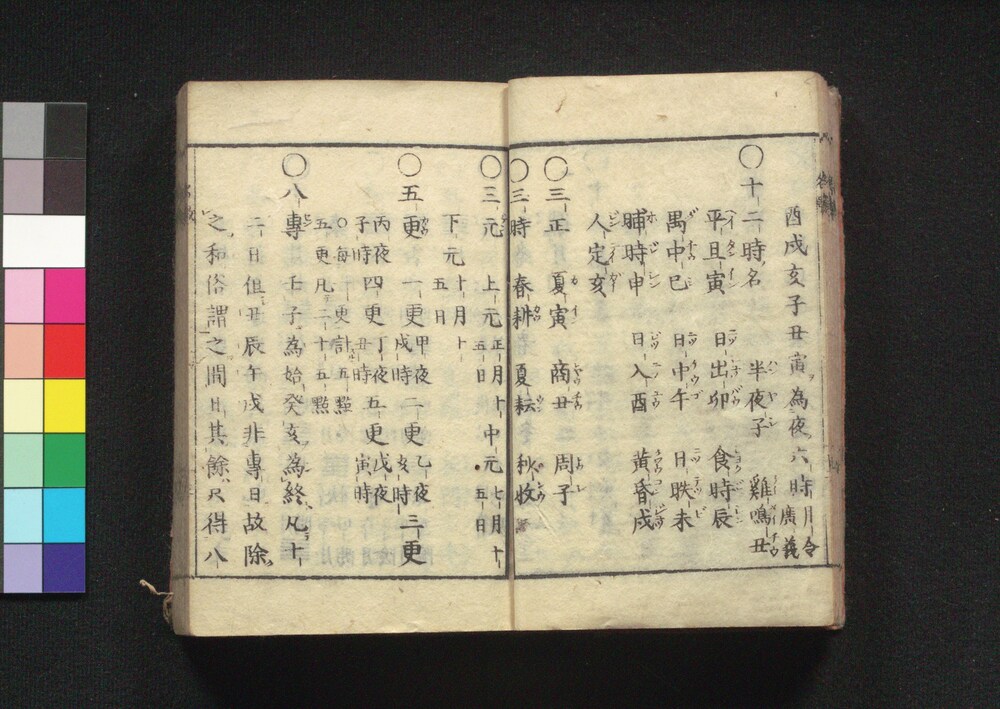 酉戌亥子丑寅為夜六時月令廣義
○十二時名 半夜子 雞鳴丑
平旦寅 日出卯 食時辰
禺中巳 日中午 日昳未
晡時申 日入酉 黄昏戌
人定亥
○三正 夏寅 商丑 周子
○三時 春耕 夏耘 秋收
○三元 上元正月十五日 中元七月十五日
下元十月十五日
○五更 一更甲夜戌時 二更乙夜亥時 三更
丙夜子時 四更丁夜丑時 五更戊夜寅時
○每一更計五點
五更凡二十五點
○八專 壬子為始癸亥為終凡十
二日但丑辰午戌非專日故除
之和俗謂之間日其餘只得八